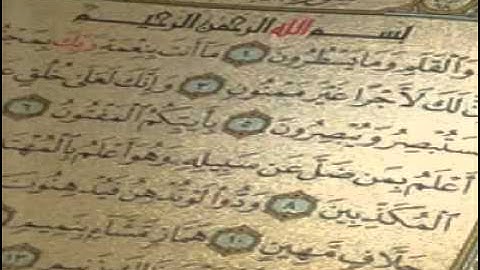 بسم الله الرحمن الرحيم
والقلم وما يسطرون ١ ما أنت بنعمة ربك
لك لأجرا غير ممنون ٣ وإنك لعلى خلق
ستبصر ويبصرون ٥ بأييكم المفتون ٦
أعلم بمن ضل عن سبيله وهو أعلم
المكذبين ٨ ودوا لو تدهن فيدهنون
حلاف مهين ١٠ هماز مشاء بنميم